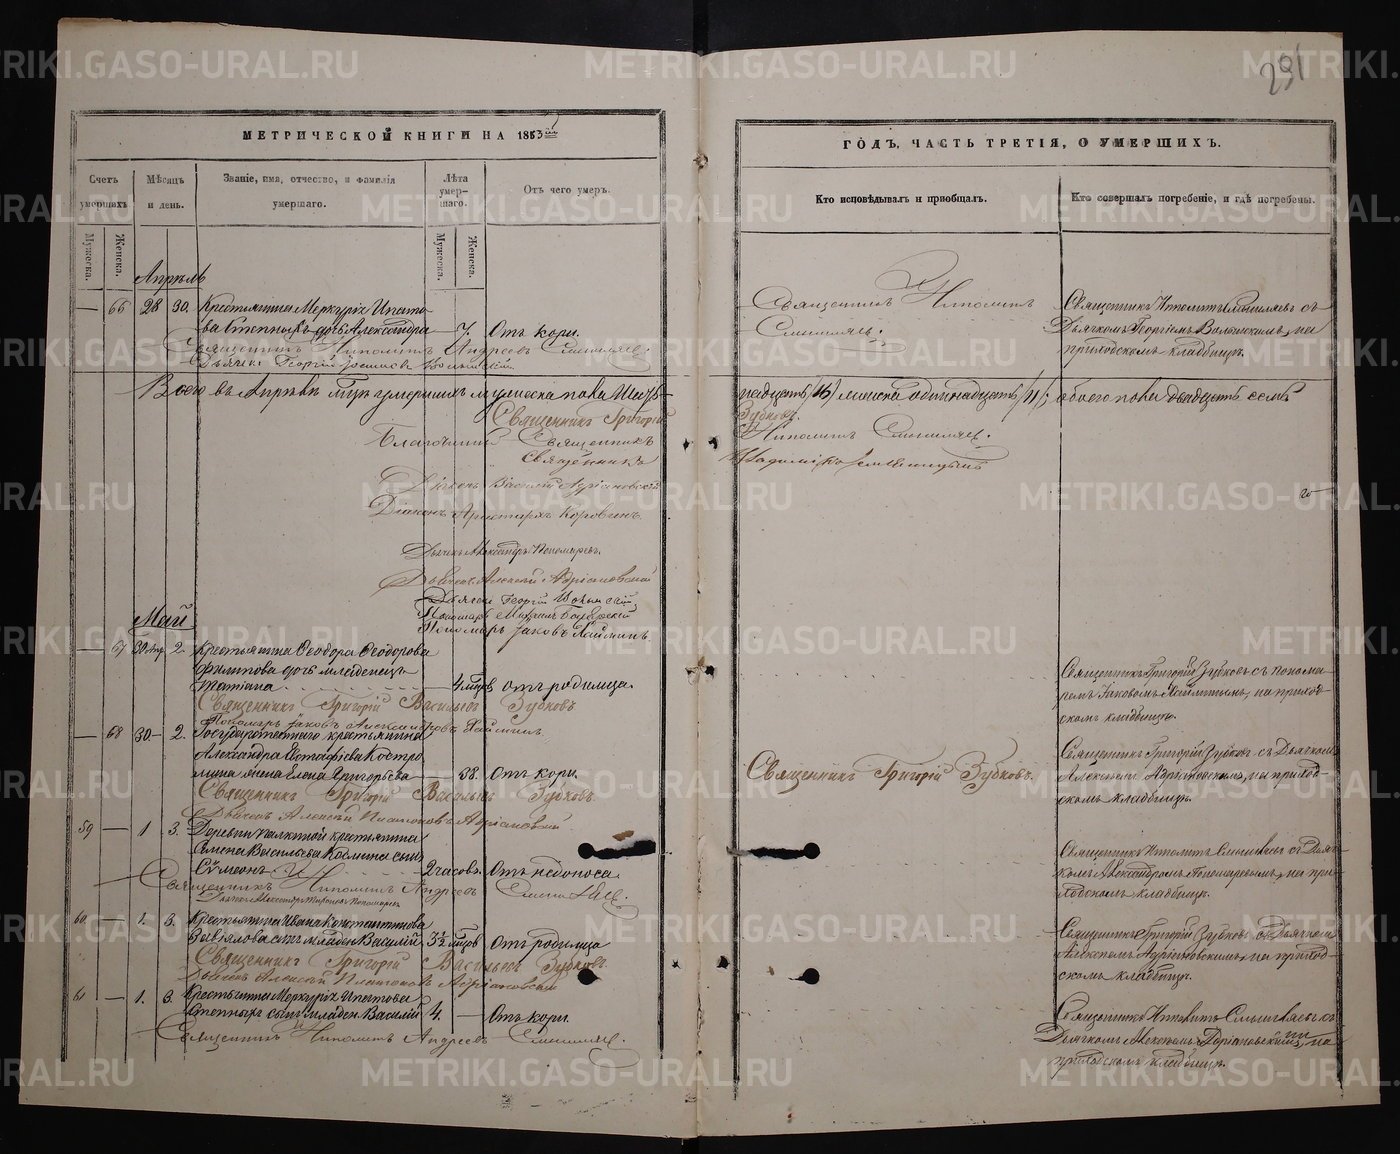 291
МЕТРИЧЕСКОЙ КНИГИ НА 1853 й
ГОДЪ, ЧАСТЬ ТРЕТІЯ, О УМЕРШИХЪ.
Счетъ умершихъ
Мѣсяцъ и день.
Званіе, имя, отчество, и фамилія умершаго.
Лѣта умер-шаго.
Отъ чего умеръ.
Кто исповѣдывалъ и пріобщалъ.
Кто совершалъ погребеніе, и гдѣ погребены.
Мужеска.
Женска.
Мужеска.
Женска.
Апрѣль
— 66 28 30. Крестьянина Меркурія Ипато-
ва Степныхъ дочь Александра 7. Отъ кори.
Священникъ Иполитъ Андреевъ Смышляевъ.
Дьячекъ Георгій
Священникъ Иполитъ
Смышляевъ.
Священникъ Иполитъ Смышляевъ съ
Дьячкомъ Георгіемъ Волынскимъ, на
приходскомъ кладбищѣ.
Всего въ Апрѣлѣ м-цѣ умершихъ мужеска пола Шест-
надцать /16/ женска одиннадцать /11/; обоего пола двадцать семь
Священникъ Григорій
Зубковъ.
Благочинный Священникъ
Иполитъ Смышляевъ.
Священникъ
Діаконъ Василій Адріановскій
Діаконъ Аристархъ Коровинъ.
Дьячекъ Александръ Пономаревъ.
Дьячекъ Алексѣй Адріановскій
Дьячекъ Георгій Волынскій
Пономарь Михаилъ
Пономарь Іаковъ Хайминъ.
Май
— 67 30 Апр. 2. Крестьянина Ѳеодора Ѳеодорова
Филипова дочь младенецъ
Татіана 4 мцовъ отъ родимца.
Священникъ Григорій Васильевъ Зубковъ
Пономарь Іаковъ Александровъ Хайминъ.
Священникъ Григорій Зубковъ съ понома-
ремъ Іаковомъ Хайминымъ, на приход-
скомъ кладбищѣ.
— 68 30 — 2. Государственнаго крестьянина
Александра Евстафіева Костро
мина жена Елена Григорьева 38. Отъ кори.
Священникъ Григорій Васильевъ Зубковъ.
Дьячекъ Алексѣй Платоновъ Адріановскій
Священникъ Григорій Зубковъ.
Священникъ Григорій Зубковъ съ Дьячкомъ
Алексѣемъ Адріановскимъ, на приход-
скомъ кладбищѣ.
59 — 1 3. Деревни крестьянина
Семена Васильева сынъ
Сѵмеонъ 2 часовъ. Отъ недоноса
Священникъ Иполитъ Андреевъ Смышляевъ.
Дьячекъ Александръ Пономаревъ
Священникъ Иполитъ Смышляевъ съ Дьяч-
комъ Александромъ Пономаревымъ, на при-
ходскомъ кладбищѣ.
60 — 1. 3. Крестьянина Ивана Константинова
Завьялова сынъ младен. Василій 3½ мцовъ Отъ родимца
Священникъ Григорій Васильевъ Зубковъ.
Дьячекъ Алексѣй Платоновъ Адріановскій
Священникъ Григорій Зубковъ съ Дьячкомъ
Алексѣемъ Адріановскимъ, на приход-
скомъ кладбищѣ.
61 — 1. 3. Крестьянина Меркурія Ипатова
Степныхъ сынъ младен. Василій 4. — Отъ кори.
Священникъ Иполитъ Андреевъ Смышляевъ.
Священникъ Иполитъ Смышляевъ съ
Дьячкомъ Алексѣемъ Адріановскимъ, на
приходскомъ кладбищѣ.
METRIKI.GASO-URAL.RU